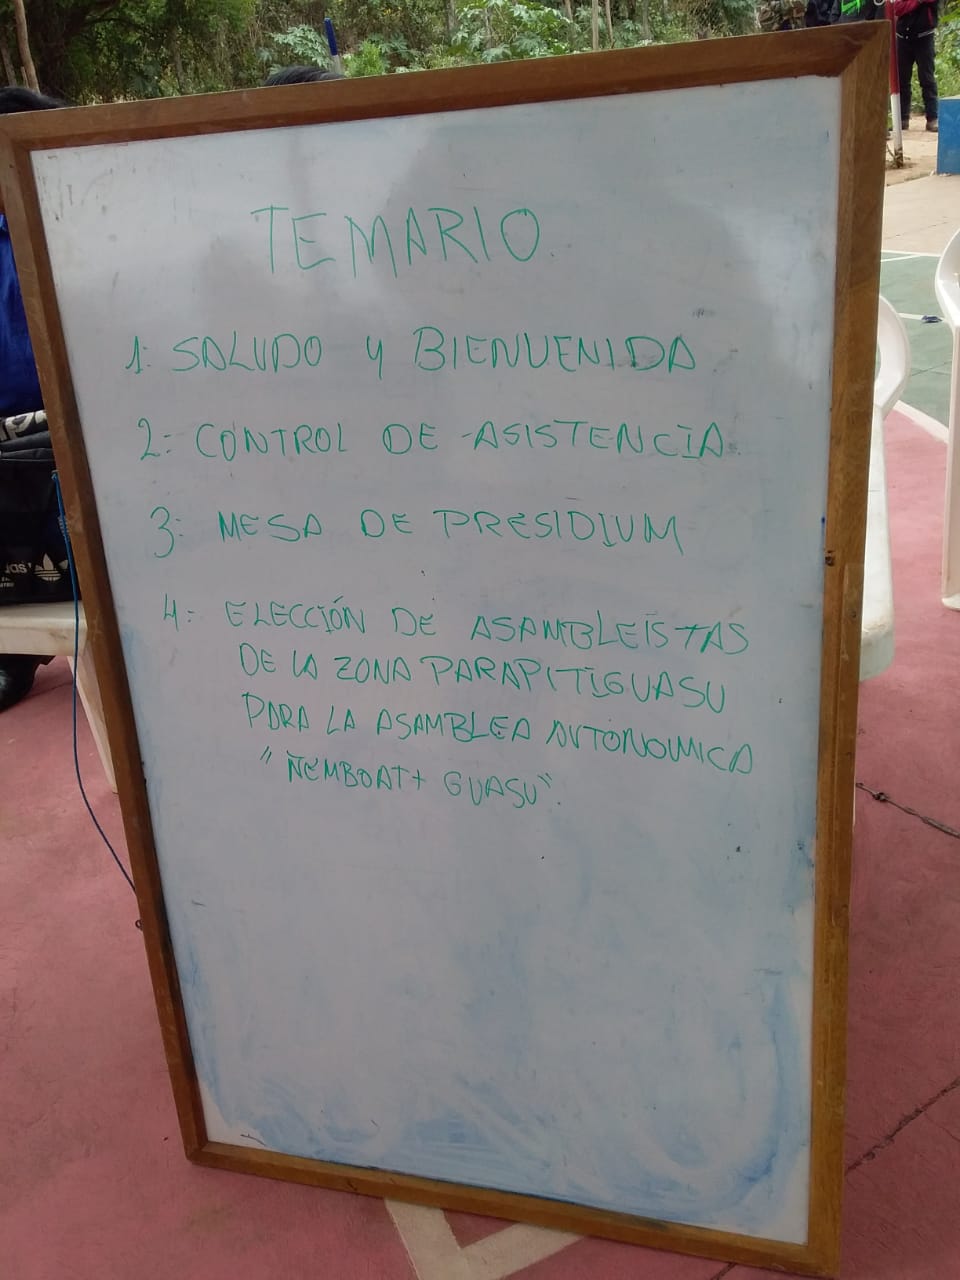 TEMARIO.
1: SALUDO Y BIENVENIDA
2: CONTROL DE ASISTENCIA.
3: MESA DE PRESIDIUM
4: ELECCIÓN DE ASAMBLEISTAS
DE LA ZONA PARAPITIGUASU
PARA LA ASAMBLEA AUTONOMICA
"ÑEMBOATɨ GUASU".